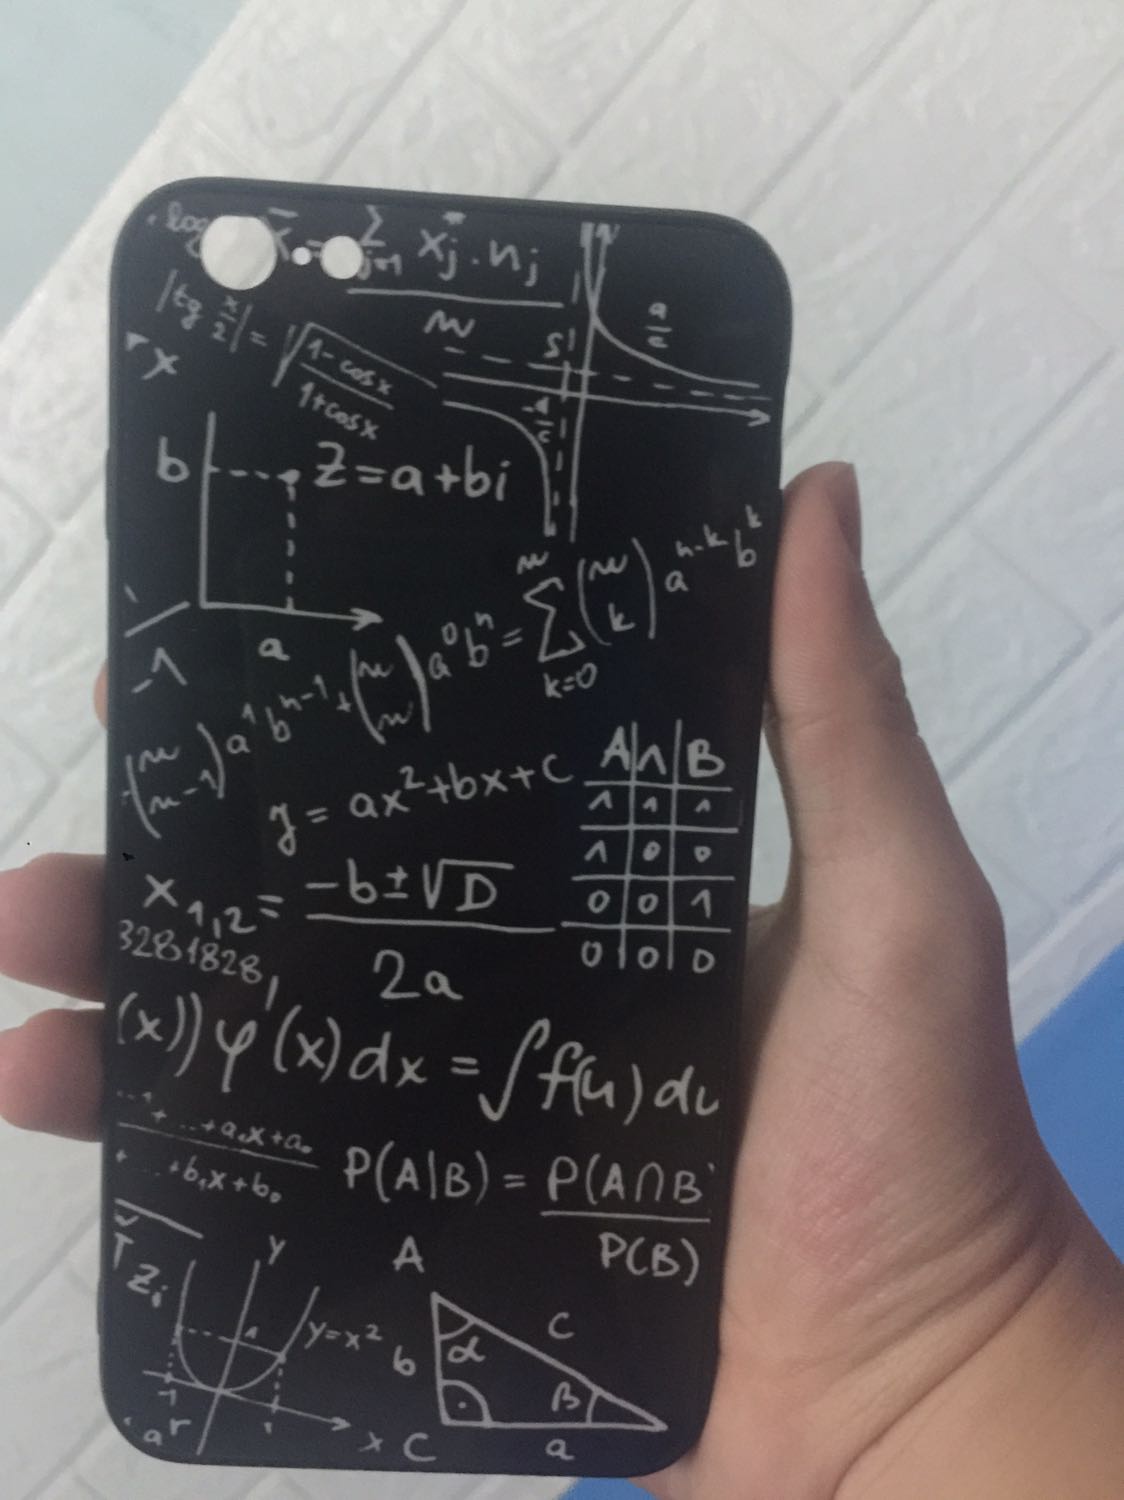 log x̄ = ∑ j=1 xj · nj
n
|tg x/2| = √(1-cosx / 1+cosx)
a/c
x
b z=a+bi
a
(n n-1) a¹ b^n-1 + (n n) a⁰ bⁿ = ∑ n k=0 (n k) a^n-k b^k
y = ax²+bx+c
A ∧ B
1 1 1
1 0 0
0 0 1
0 0 0
x1,2 = -b±√D
2a
3281828
(x)) φ'(x) dx = ∫f(u) du
...+a₁x+a₀
+...+b₁x+b₀
P(A|B) = P(A∩B
P(B)
zi
y
1
y=x²
-1
1
x
A
b α c
β
C a